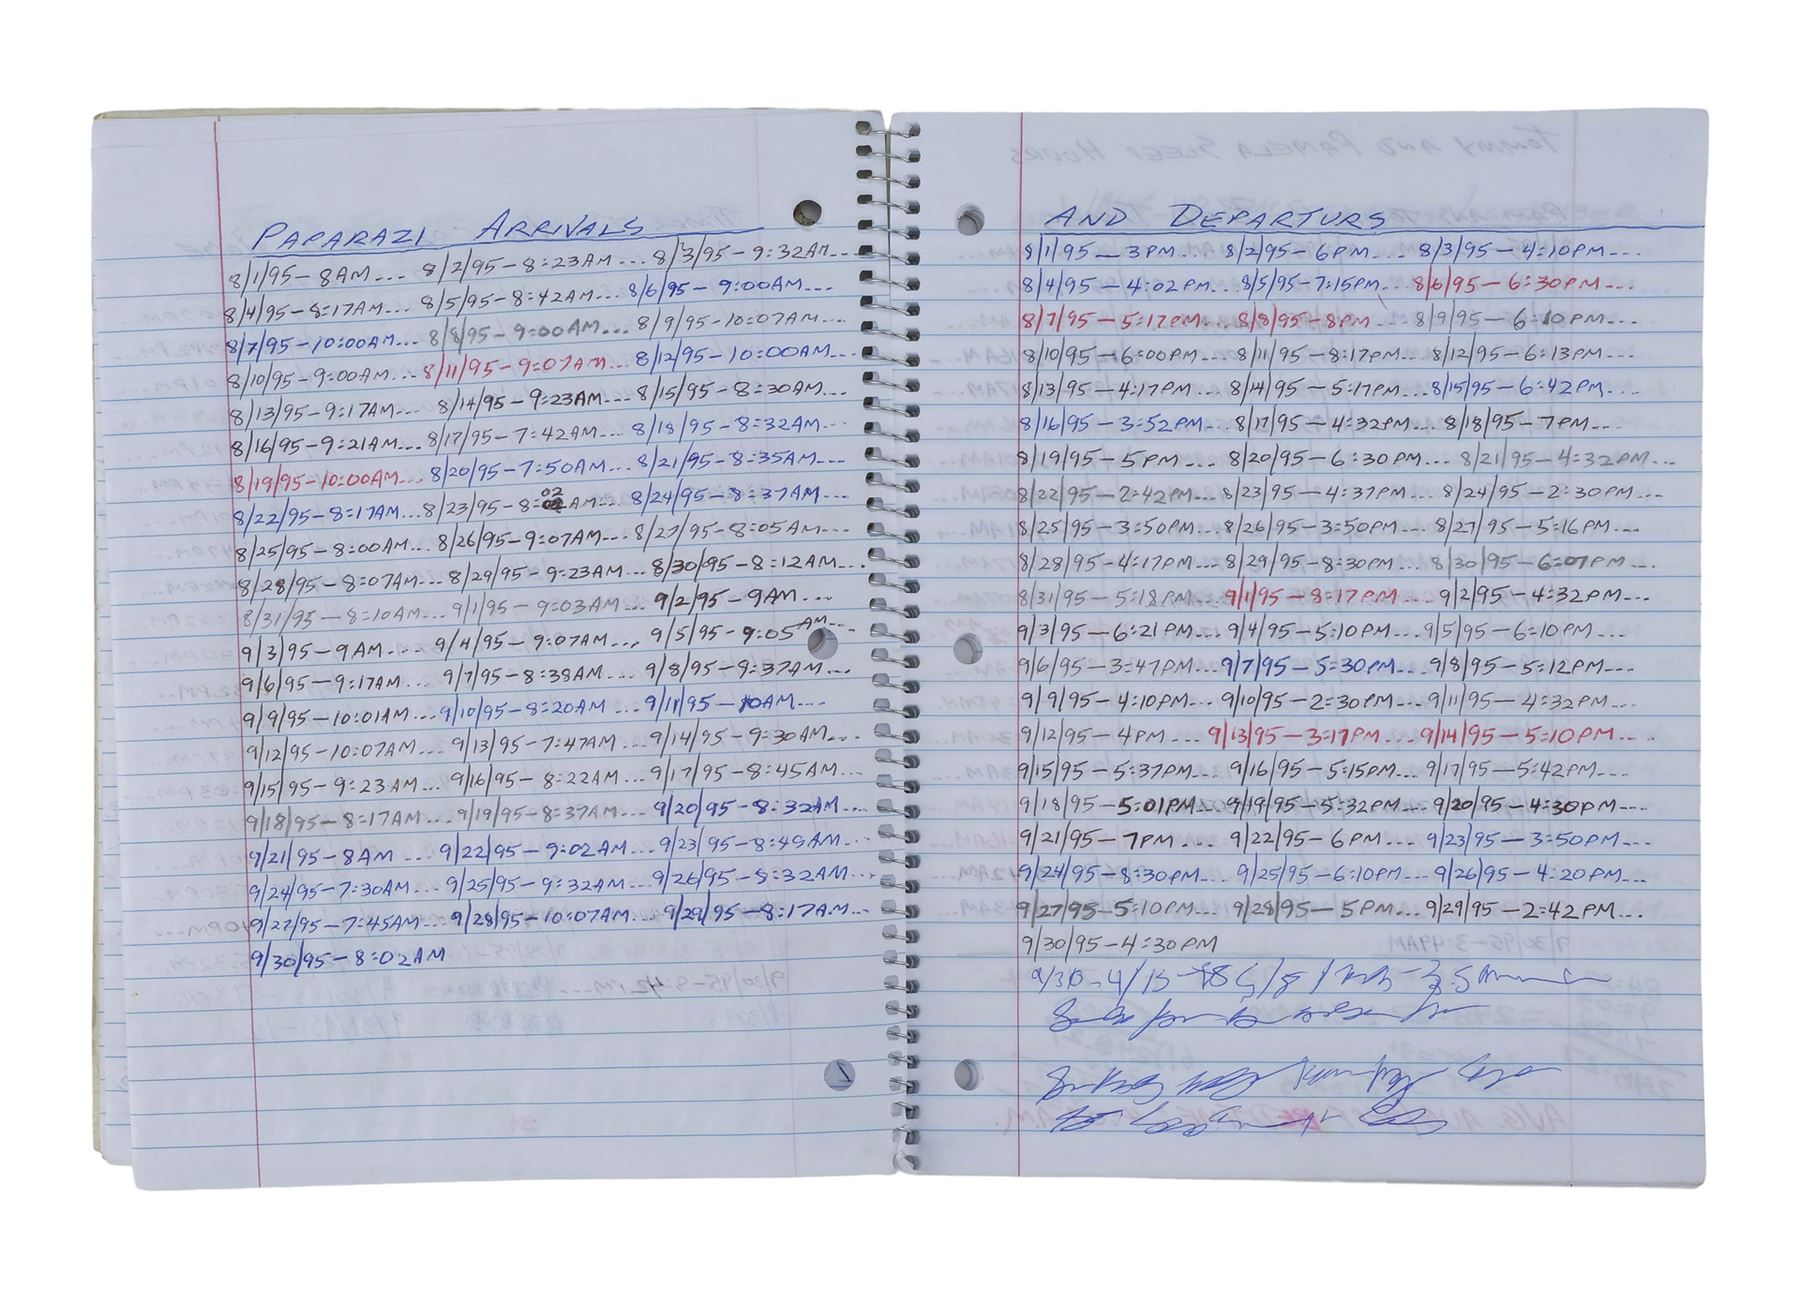 PAPARAZI ARRIVALS
8/1/95-8AM... 8/2/95-8:23AM... 8/3/95-9:32AM...
8/4/95-8:17AM... 8/5/95-8:42AM... 8/6/95-9:00AM...
8/7/95-10:00AM... 8/8/95-9:00AM... 8/9/95-10:07AM...
8/10/95-9:00AM... 8/11/95-9:07AM 8/12/95-10:00AM...
8/13/95-9:17AM... 8/14/95-9:23AM... 8/15/95-8:30AM...
8/16/95-9:21AM... 8/17/95-7:42AM... 8/18/95-8:32AM...
8/19/95-10:00AM... 8/20/95-7:50AM... 8/21/95-8:35AM...
8/22/95-8:17AM... 8/23/95-8:02AM... 8/24/95-8:37AM...
8/25/95-8:00AM... 8/26/95-9:07AM... 8/27/95-8:05AM...
8/28/95-8:07AM... 8/29/95-9:23AM... 8/30/95-8:12AM...
8/31/95-8:10AM... 9/1/95-9:03AM... 9/2/95-9AM...
9/3/95-9AM... 9/4/95-9:07AM... 9/5/95-9:05AM...
9/6/95-9:17AM... 9/7/95-8:38AM... 9/8/95-9:37AM...
9/9/95-10:01AM... 9/10/95-8:20AM... 9/11/95-10AM...
9/12/95-10:07AM... 9/13/95-7:47AM... 9/14/95-9:30AM...
9/15/95-9:23AM... 9/16/95-8:22AM... 9/17/95-8:45AM...
9/18/95-8:17AM... 9/19/95-8:37AM... 9/20/95-8:32AM...
9/21/95-8AM... 9/22/95-9:02AM... 9/23/95-8:49AM...
9/24/95-7:30AM... 9/25/95-9:32AM... 9/26/95-8:32AM...
9/27/95-7:45AM... 9/28/95-10:07AM... 9/29/95-8:17AM...
9/30/95-8:02AM
AND DEPARTURS
8/1/95-3PM... 8/2/95-6PM... 8/3/95-4:10PM...
8/4/95-4:02PM... 8/5/95-7:15PM... 8/6/95-6:30PM...
8/7/95-5:17PM... 8/8/95-8PM... 8/9/95-6:10PM...
8/10/95-6:00PM... 8/11/95-8:17PM... 8/12/95-6:13PM...
8/13/95-4:17PM... 8/14/95-5:17PM... 8/15/95-6:42PM...
8/16/95-3:52PM... 8/17/95-4:32PM... 8/18/95-7PM...
8/19/95-5PM... 8/20/95-6:30PM... 8/21/95-4:32PM...
8/22/95-2:42PM... 8/23/95-4:37PM... 8/24/95-2:30PM...
8/25/95-3:50PM... 8/26/95-3:50PM... 8/27/95-5:16PM...
8/28/95-4:17PM... 8/29/95-8:30PM... 8/30/95-6:07PM...
8/31/95-5:18PM... 9/1/95-8:17PM... 9/2/95-4:32PM...
9/3/95-6:21PM... 9/4/95-5:10PM... 9/5/95-6:10PM...
9/6/95-3:47PM... 9/7/95-5:30PM... 9/8/95-5:12PM...
9/9/95-4:10PM... 9/10/95-2:30PM... 9/11/95-4:32PM...
9/12/95-4PM... 9/13/95-3:17PM... 9/14/95-5:10PM...
9/15/95-5:37PM... 9/16/95-5:15PM... 9/17/95-5:42PM...
9/18/95-5:01PM... 9/19/95-5:32PM... 9/20/95-4:30PM...
9/21/95-7PM... 9/22/95-6PM... 9/23/95-3:50PM...
9/24/95-8:30PM... 9/25/95-6:10PM... 9/26/95-4:20PM...
9/27/95-5:10PM... 9/28/95-5PM... 9/29/95-2:42PM...
9/30/95-4:30PM